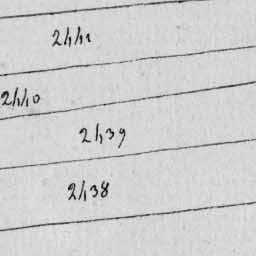 2441
2440
2439
2438